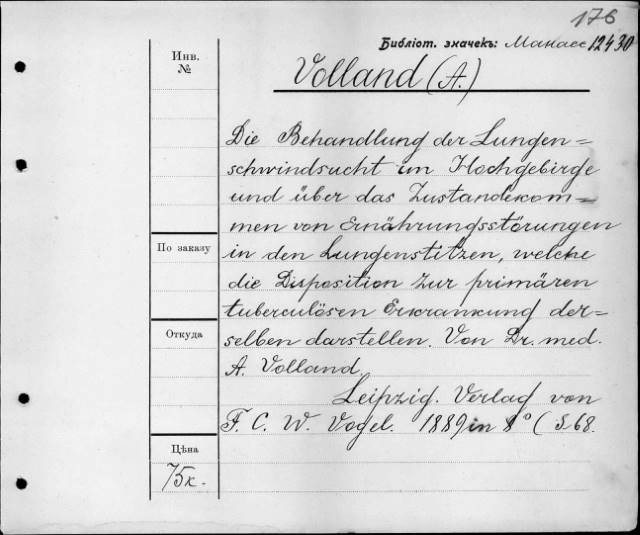 176
Библіот. значекъ: Манасс 12430
Инв.
№
Volland (A.)
Die Behandlung der Lungen=
schwindsucht im Hochgebirge
und über das Zustandekom-
men von Ernährungsstörungen
in den Lungenstitzen, welche
die Disposition zur primären
tuberculösen Erkrankung der=
selben darstellen. Von Dr. med.
A. Volland.
Leipzig. Verlag von
F. C. W. Vogel. 1889 in 8° (S. 68.
По заказу
Откуда
Цѣна
75к.